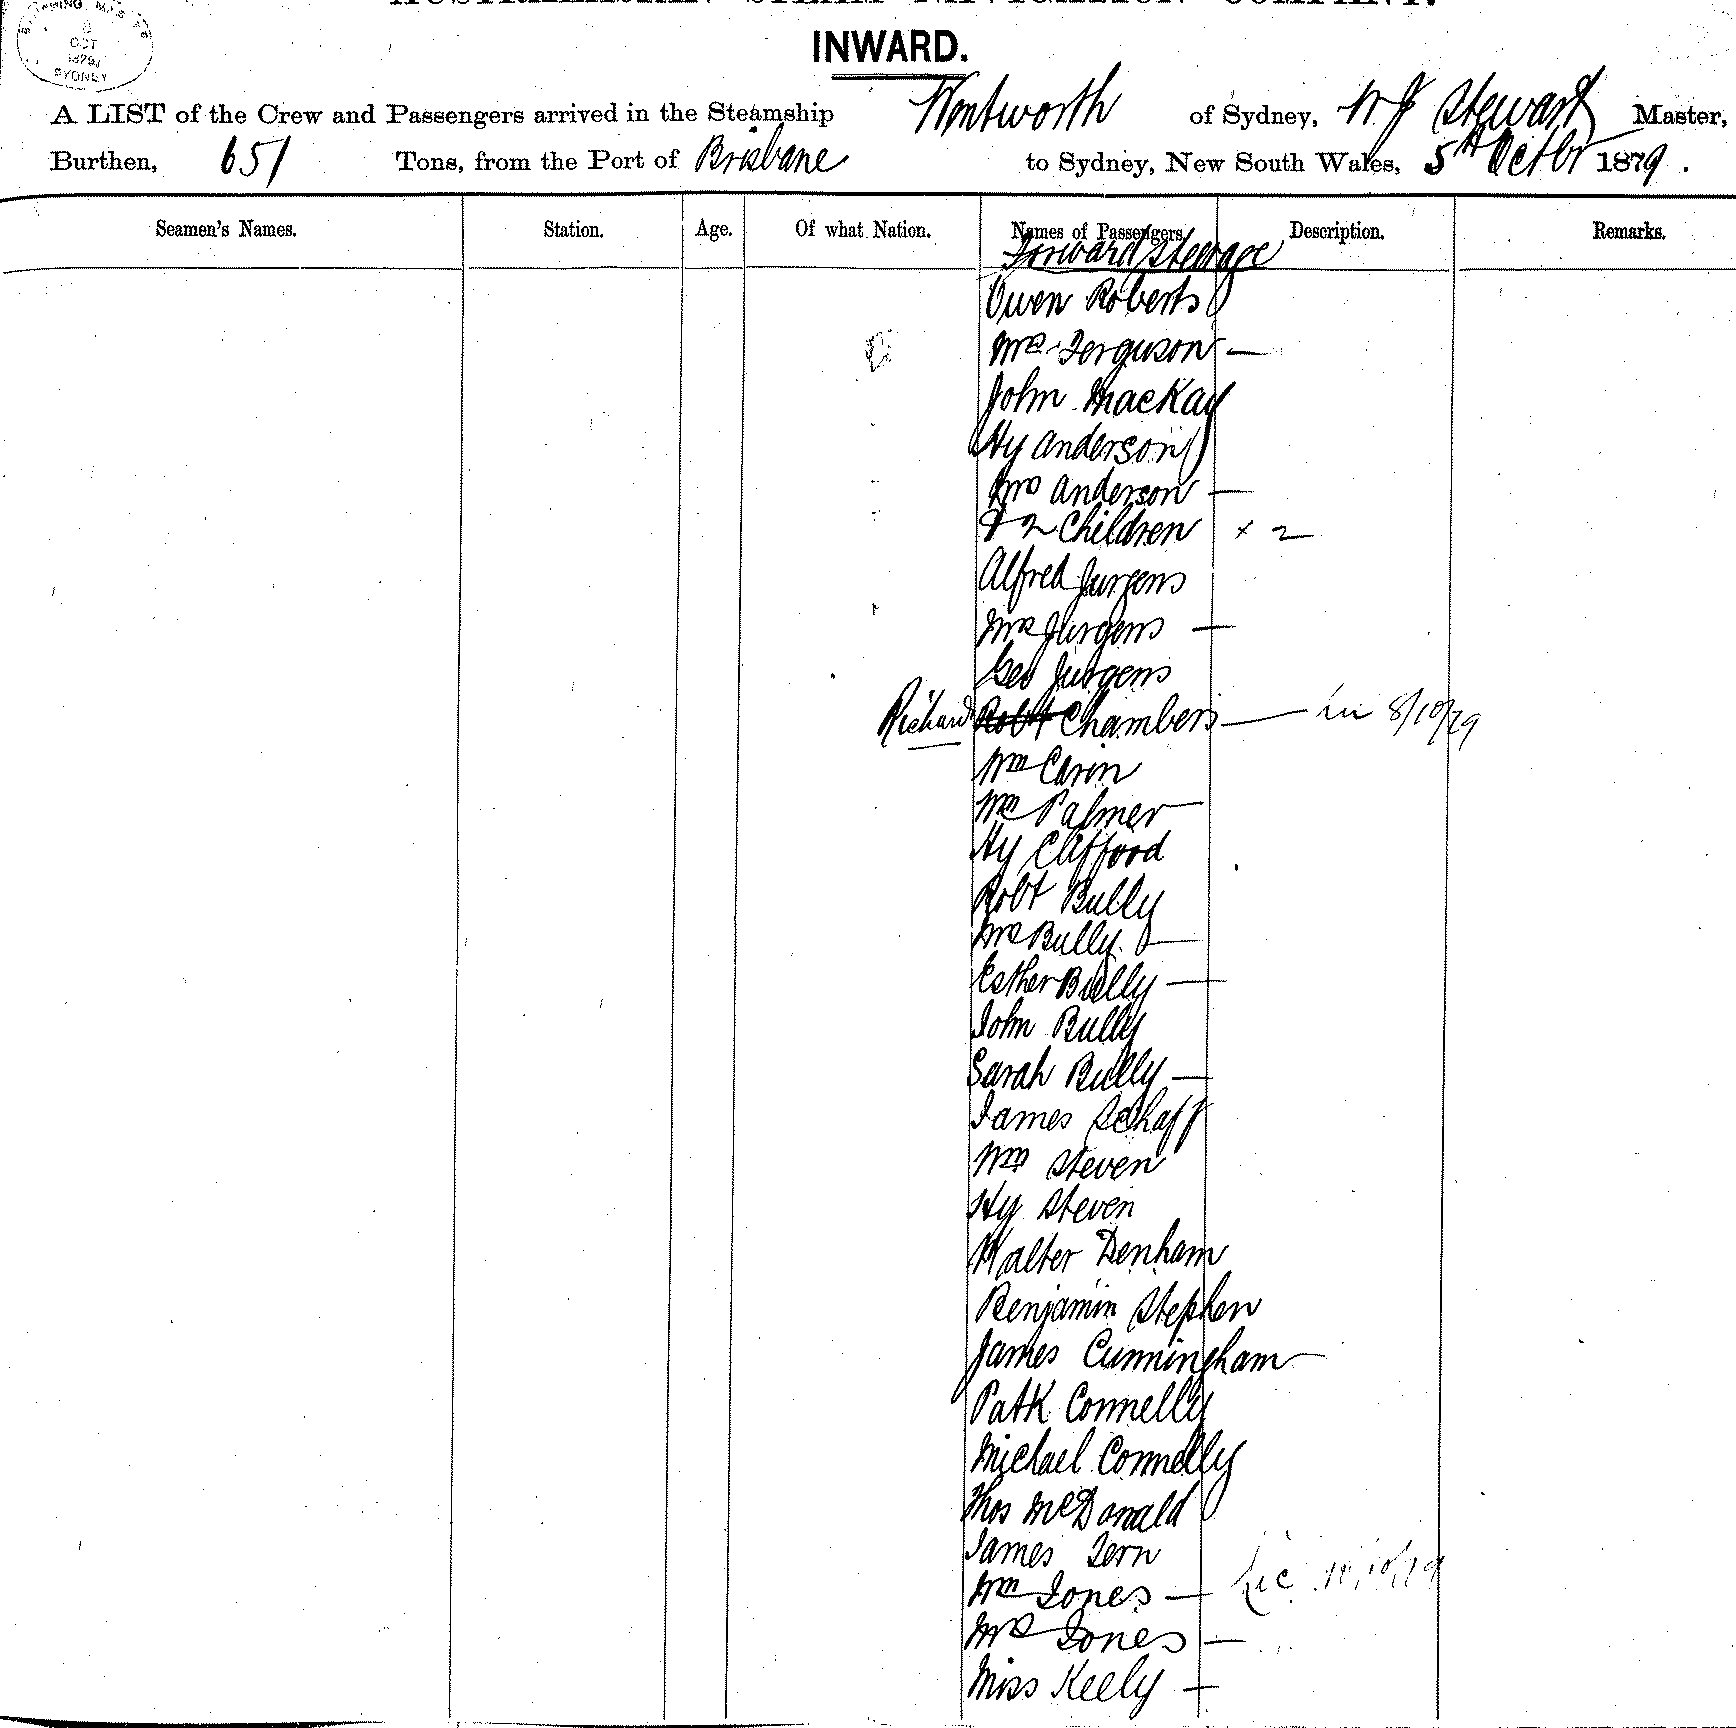 AUSTRALASIAN STEAM NAVIGATION COMPANY.
INWARD.
OCT
1879
SYDNEY
A LIST of the Crew and Passengers arrived in the Steamship Wentworth of Sydney, W J Stewart Master,
Burthen, 651 Tons, from the Port of Brisbane to Sydney, New South Wales, 5th Octbr 1879.
Seamen's Names. Station. Age. Of what Nation. Names of Passengers Description. Remarks.
Forward Steerage
Owen Roberts
Mrs Ferguson —
John MacKay
Hy Anderson
Mrs Anderson —
& 2 Children × 2 —
Alfred Jurgens
Mrs Jurgens —
Geo Jurgens
Richard Robt Chambers — 8/10/79
Wm Carin
Wm Palmer —
Hy Clifford
Robt Bully
Mrs Bully —
Esther Bully —
John Bully
Sarah Bully —
James Schaff
Wm Steven
Hy Steven
Walter Denham
Benjamin Stephen
James Cunningham —
Patk Connelly
Michael Connelly
Thos McDonald
James Fern
Wm Jones — 10/10/79
Mrs Jones —
Miss Keely —